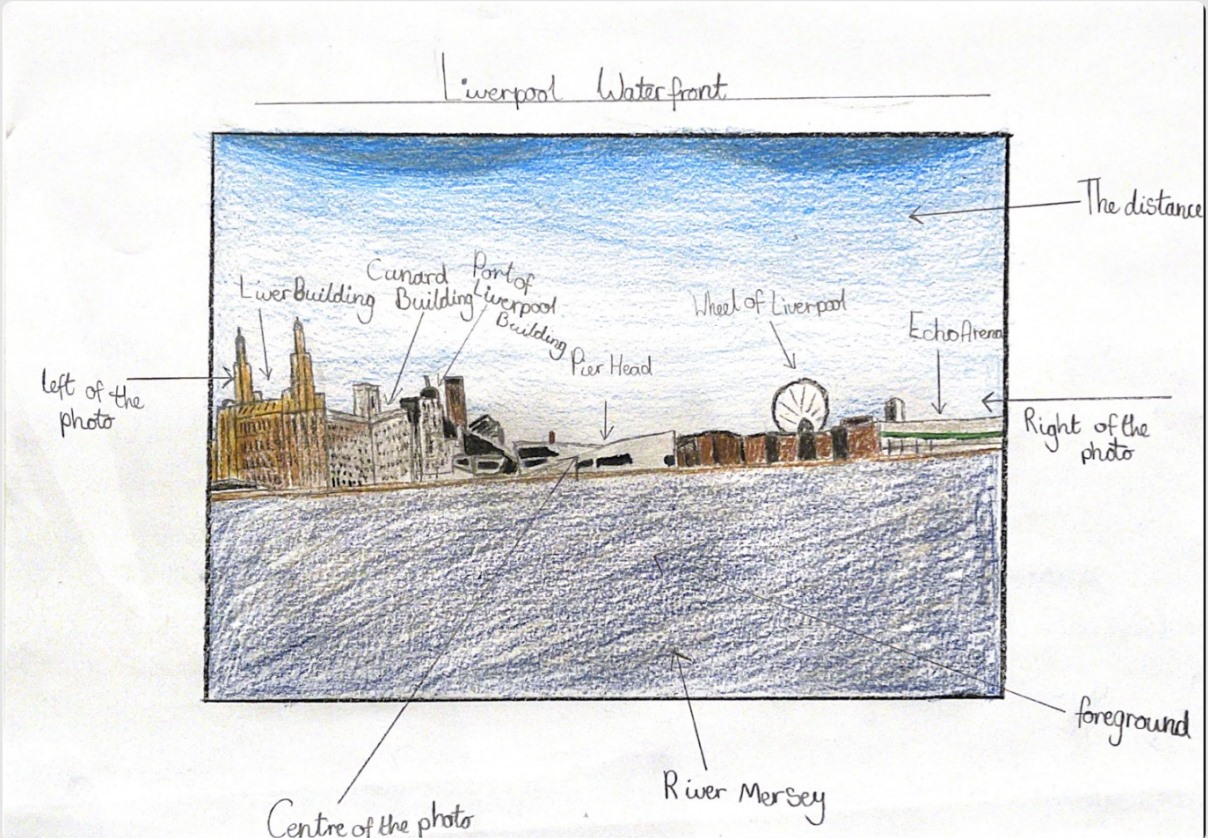 Liverpool Waterfront
The distance
Cunard
Building
Port of
Liverpool
Building
Liver Building
Wheel of Liverpool
Echo Arena
Pier Head
left of the
photo
Right of the
photo
foreground
River Mersey
Centre of the photo